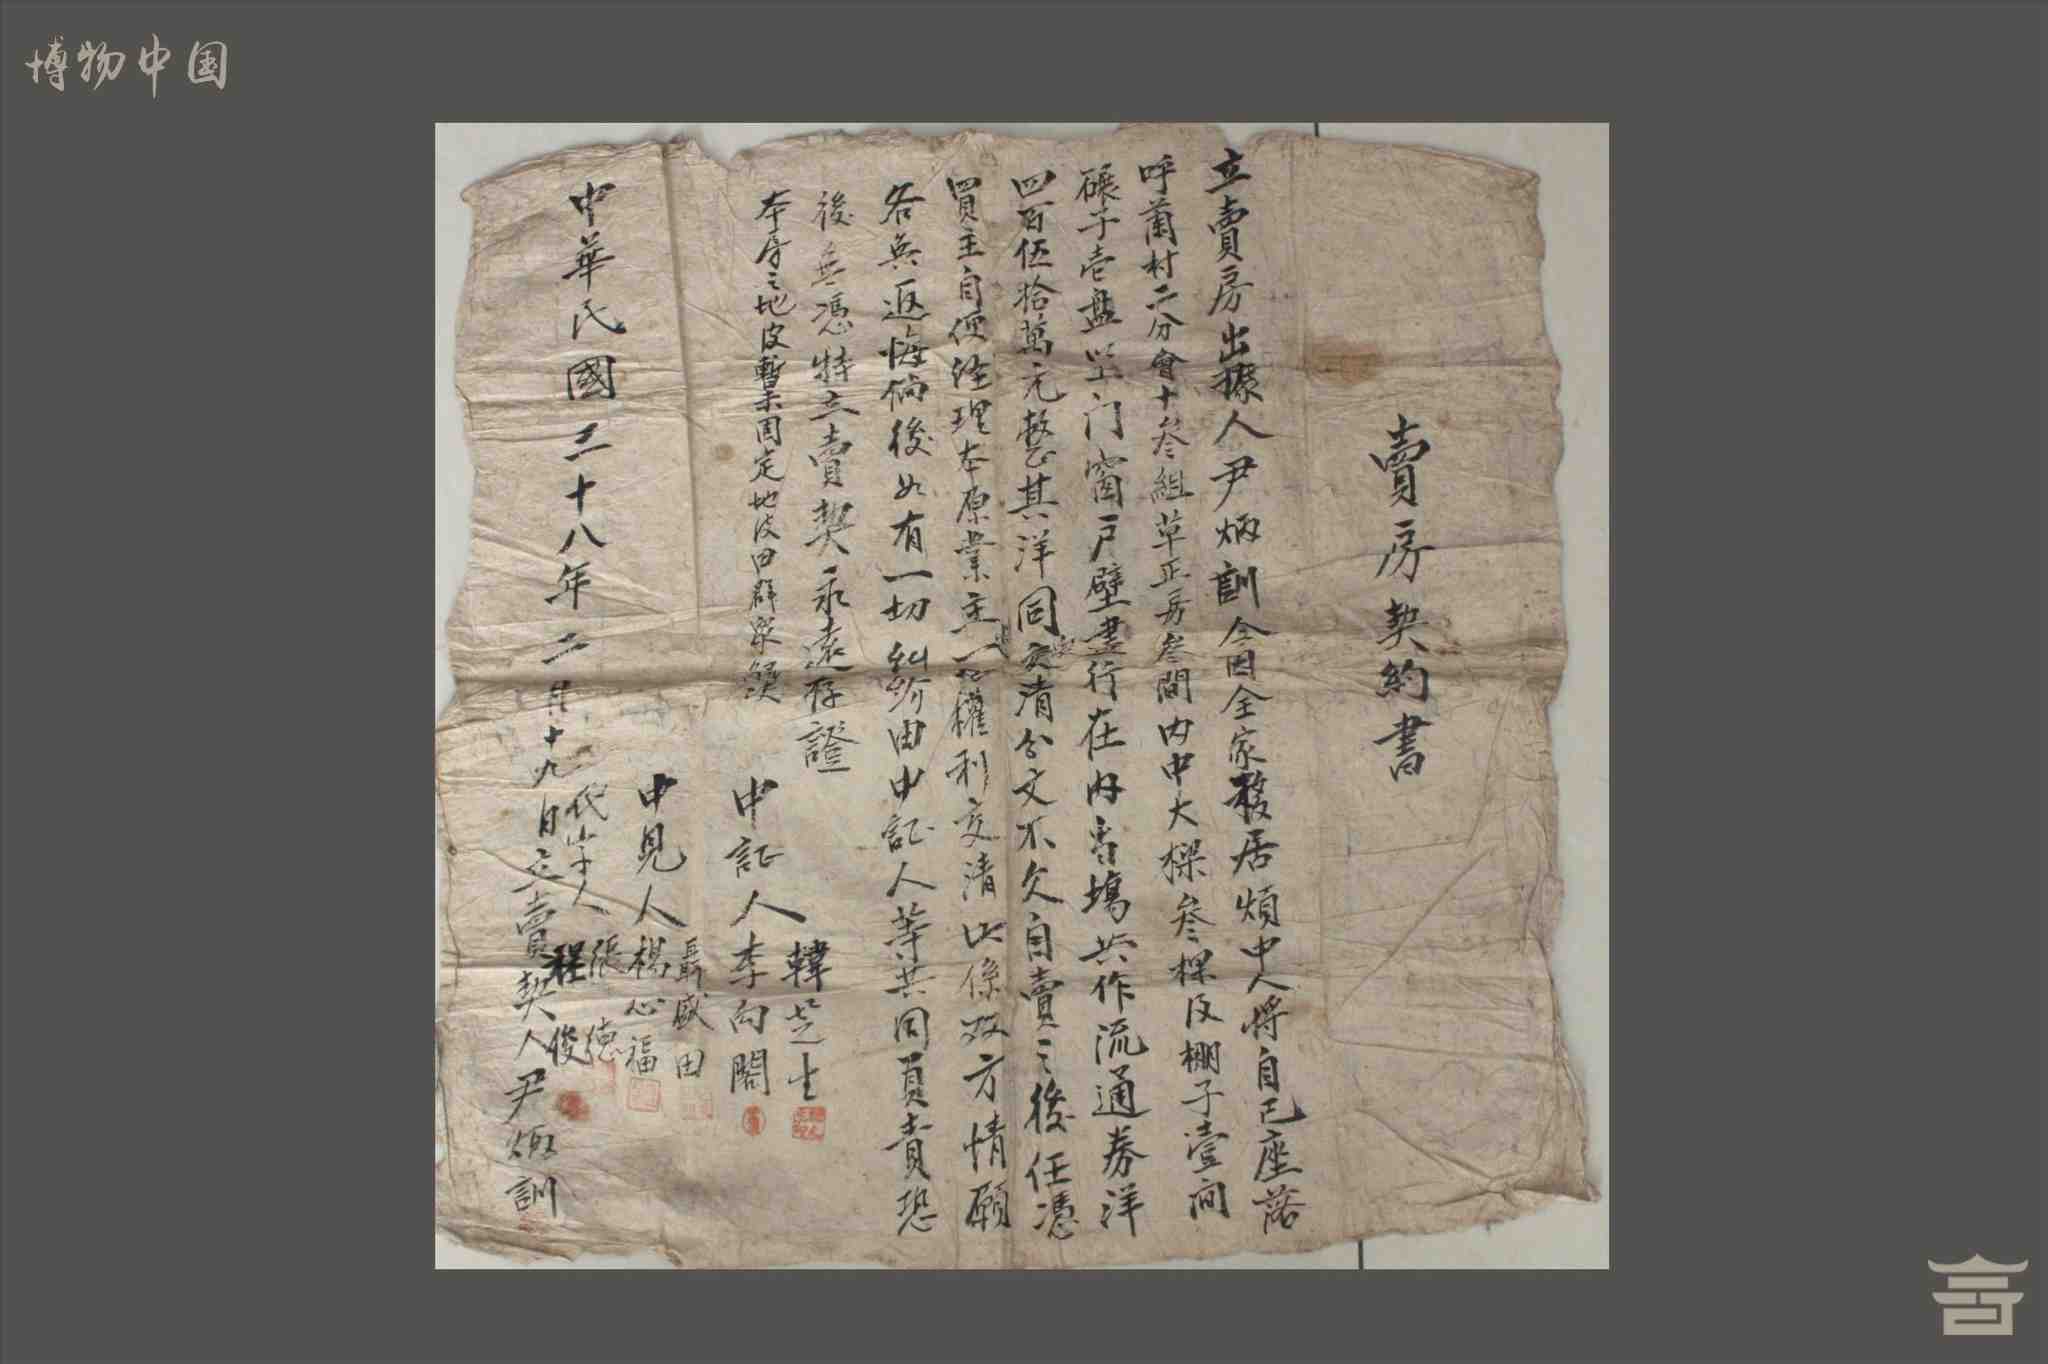 博物中国
賣房契約書
立賣房出據人尹炳訓今因全家移居煩中人將自己座落
呼蘭村二分會十叁組草正房叁間内中大樑叁棵及棚子壹间
碾子壹盤以上门窗戶壁盡行在内當場共作流通券洋
四百伍拾萬元整其洋同交清分文不欠自賣之後任憑
買主自便经理本原業主權利交清此係双方情願
各無返悔倘後如有一切糾紛由中証人等共同負責恐
後無憑特立賣契永遠存證
本房之地皮暫未固定地皮由群眾
中証人 韓芝生 李向閣
中見人 聶盛田 楊心福 張德
代字人 程俊
中華民國三十八年二月十九日立賣契人尹炳訓